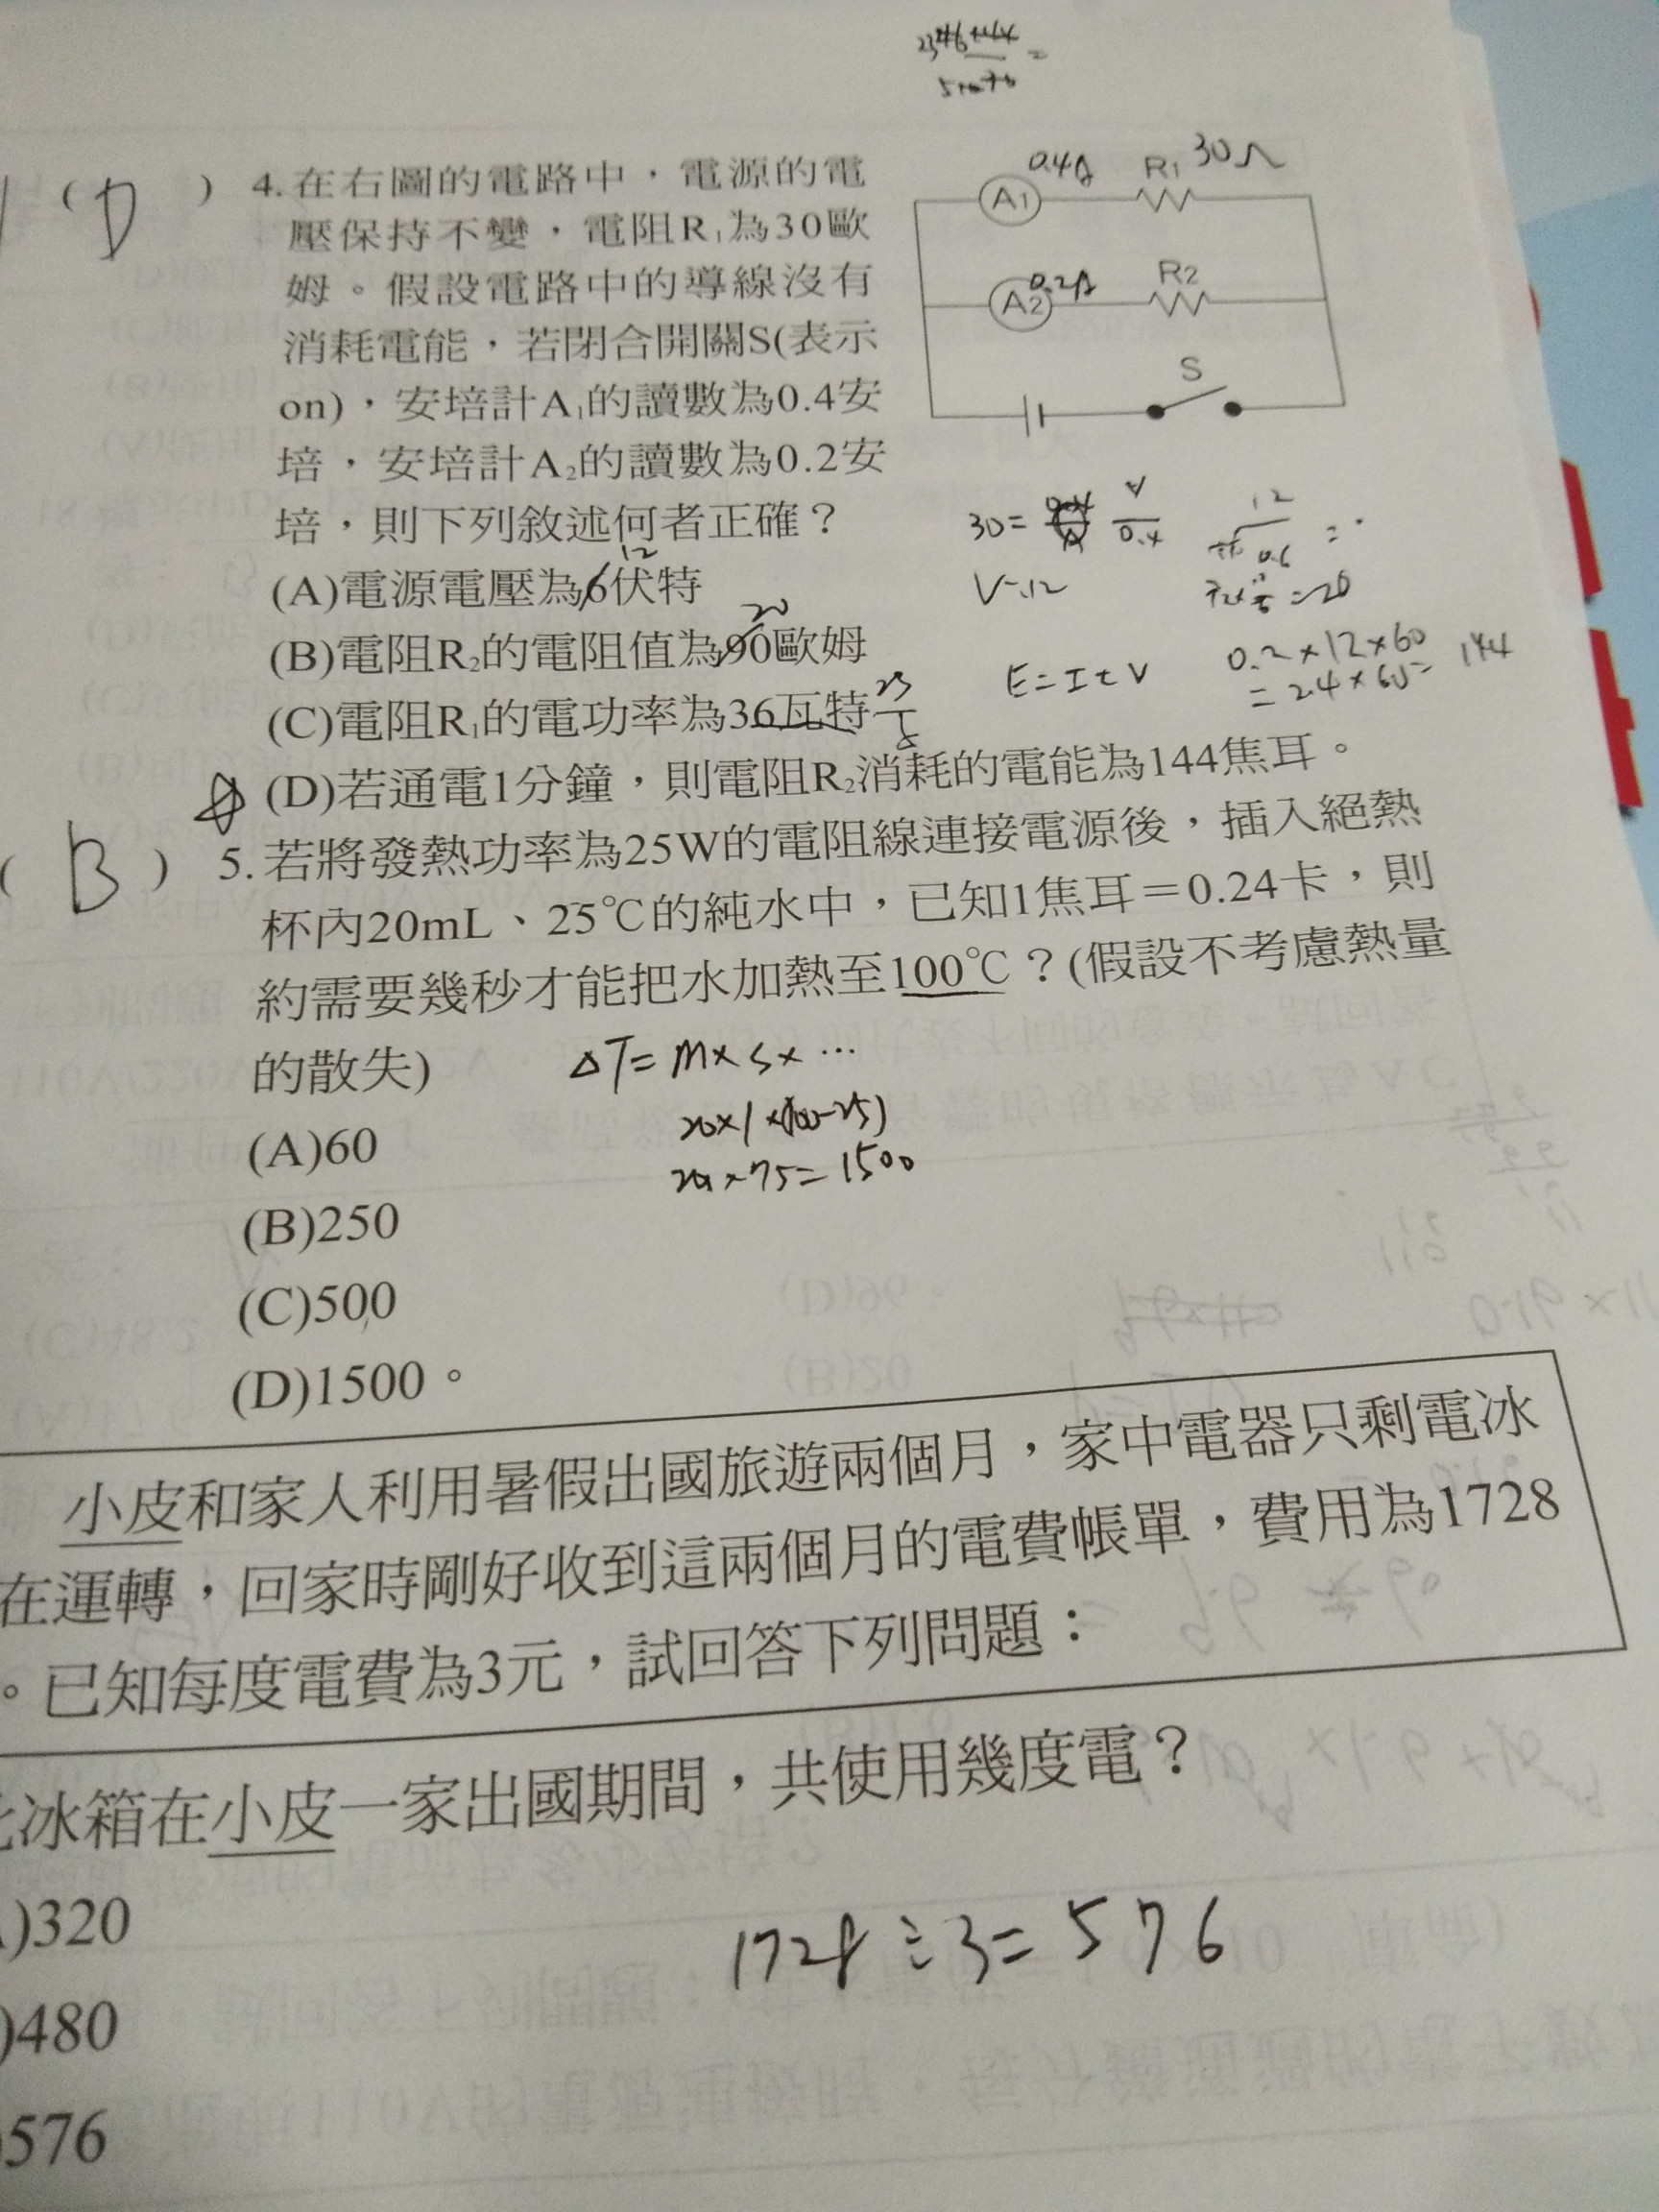 (D) 4.在右圖的電路中，電源的電
壓保持不變，電阻R₁為30歐
姆。假設電路中的導線沒有
消耗電能，若閉合開關S(表示
on)，安培計A₁的讀數為0.4安
培，安培計A₂的讀數為0.2安
培，則下列敘述何者正確？
12
(A)電源電壓為6伏特
20
(B)電阻R₂的電阻值為90歐姆
(C)電阻R₁的電功率為36瓦特
(D)若通電1分鐘，則電阻R₂消耗的電能為144焦耳。
0.4A R1 30Ω
A1
0.2A R2
A2
S
30= V/0.4
V=12
12/0.6 =
=20
E=ItV
0.2×12×60
=2.4×60= 144
(B) 5.若將發熱功率為25W的電阻線連接電源後，插入絕熱
杯內20mL、25℃的純水中，已知1焦耳＝0.24卡，則
約需要幾秒才能把水加熱至100℃？(假設不考慮熱量
的散失)
ΔT= M×S×…
20×1×(100-25)
20×75=1500
(A)60
(B)250
(C)500
(D)1500。
小皮和家人利用暑假出國旅遊兩個月，家中電器只剩電冰
在運轉，回家時剛好收到這兩個月的電費帳單，費用為1728
。已知每度電費為3元，試回答下列問題：
冰箱在小皮一家出國期間，共使用幾度電？
)320
)480
)576
1728÷3=576